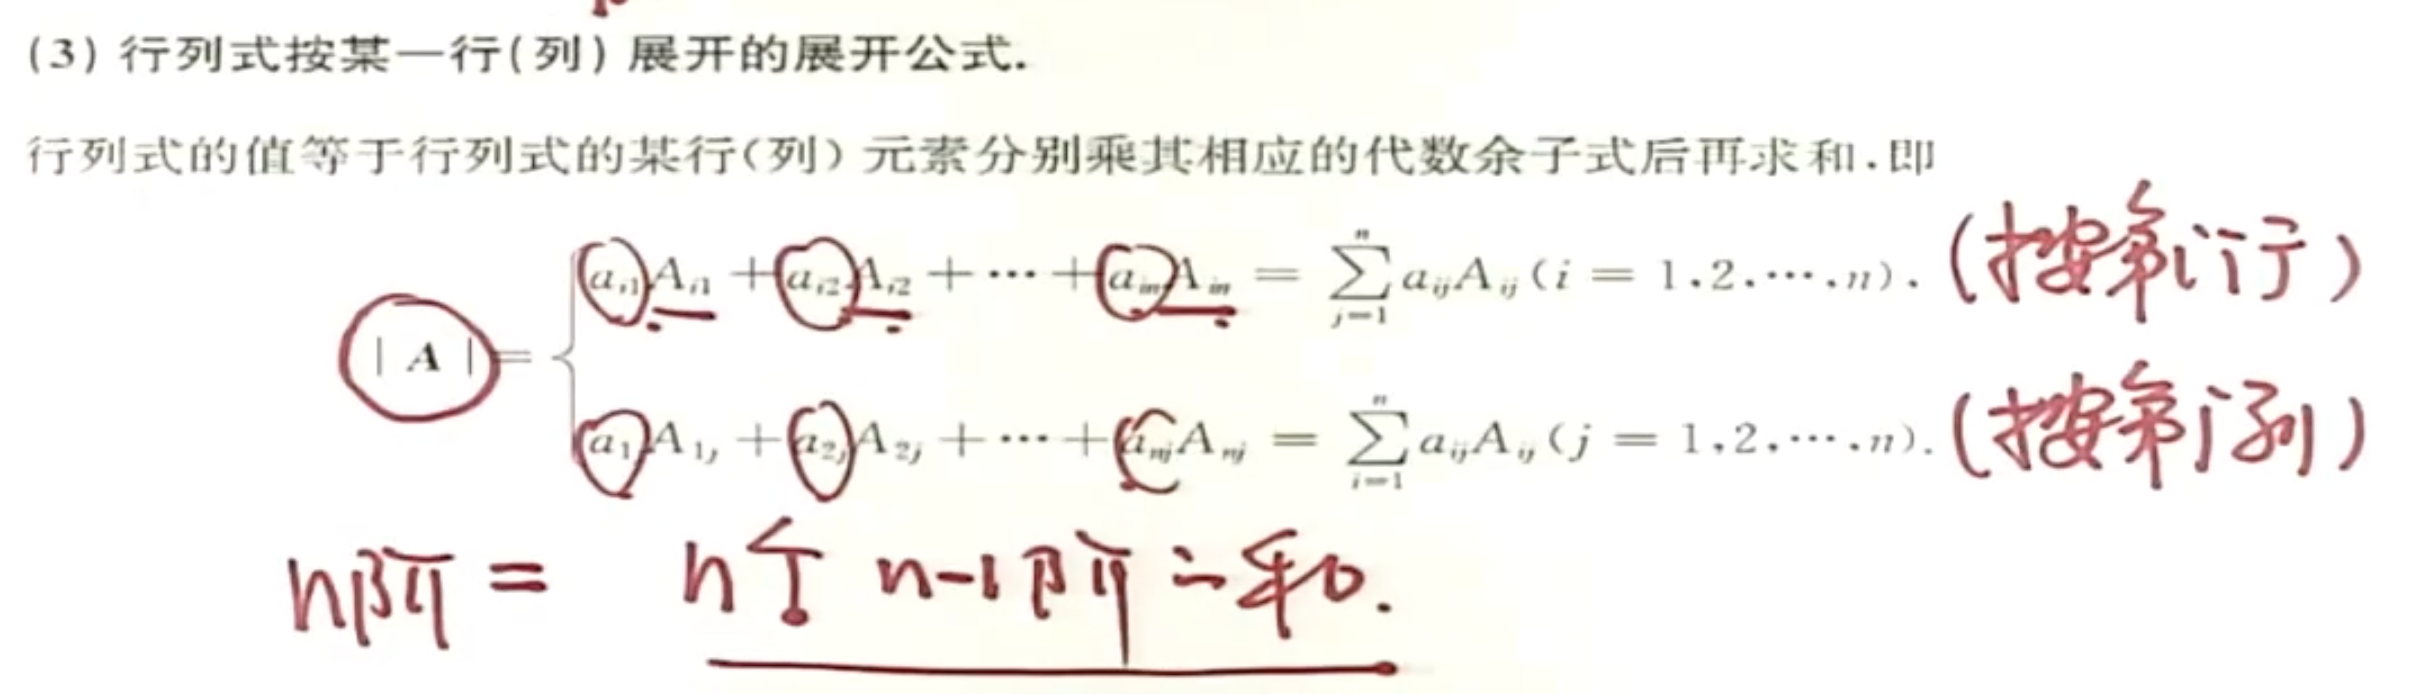 (3) 行列式按某一行(列)展开的展开公式.
行列式的值等于行列式的某行(列)元素分别乘其相应的代数余子式后再求和.即
|A| = { a_{i1}A_{i1} + a_{i2}A_{i2} + ⋯ + a_{in}A_{in} = \sum_{j=1}^{n} a_{ij}A_{ij} (i = 1,2,⋯,n). (按第i行)
a_{1j}A_{1j} + a_{2j}A_{2j} + ⋯ + a_{nj}A_{nj} = \sum_{i=1}^{n} a_{ij}A_{ij} (j = 1,2,⋯,n). (按第j列)
n阶 = n个 n-1阶之和.